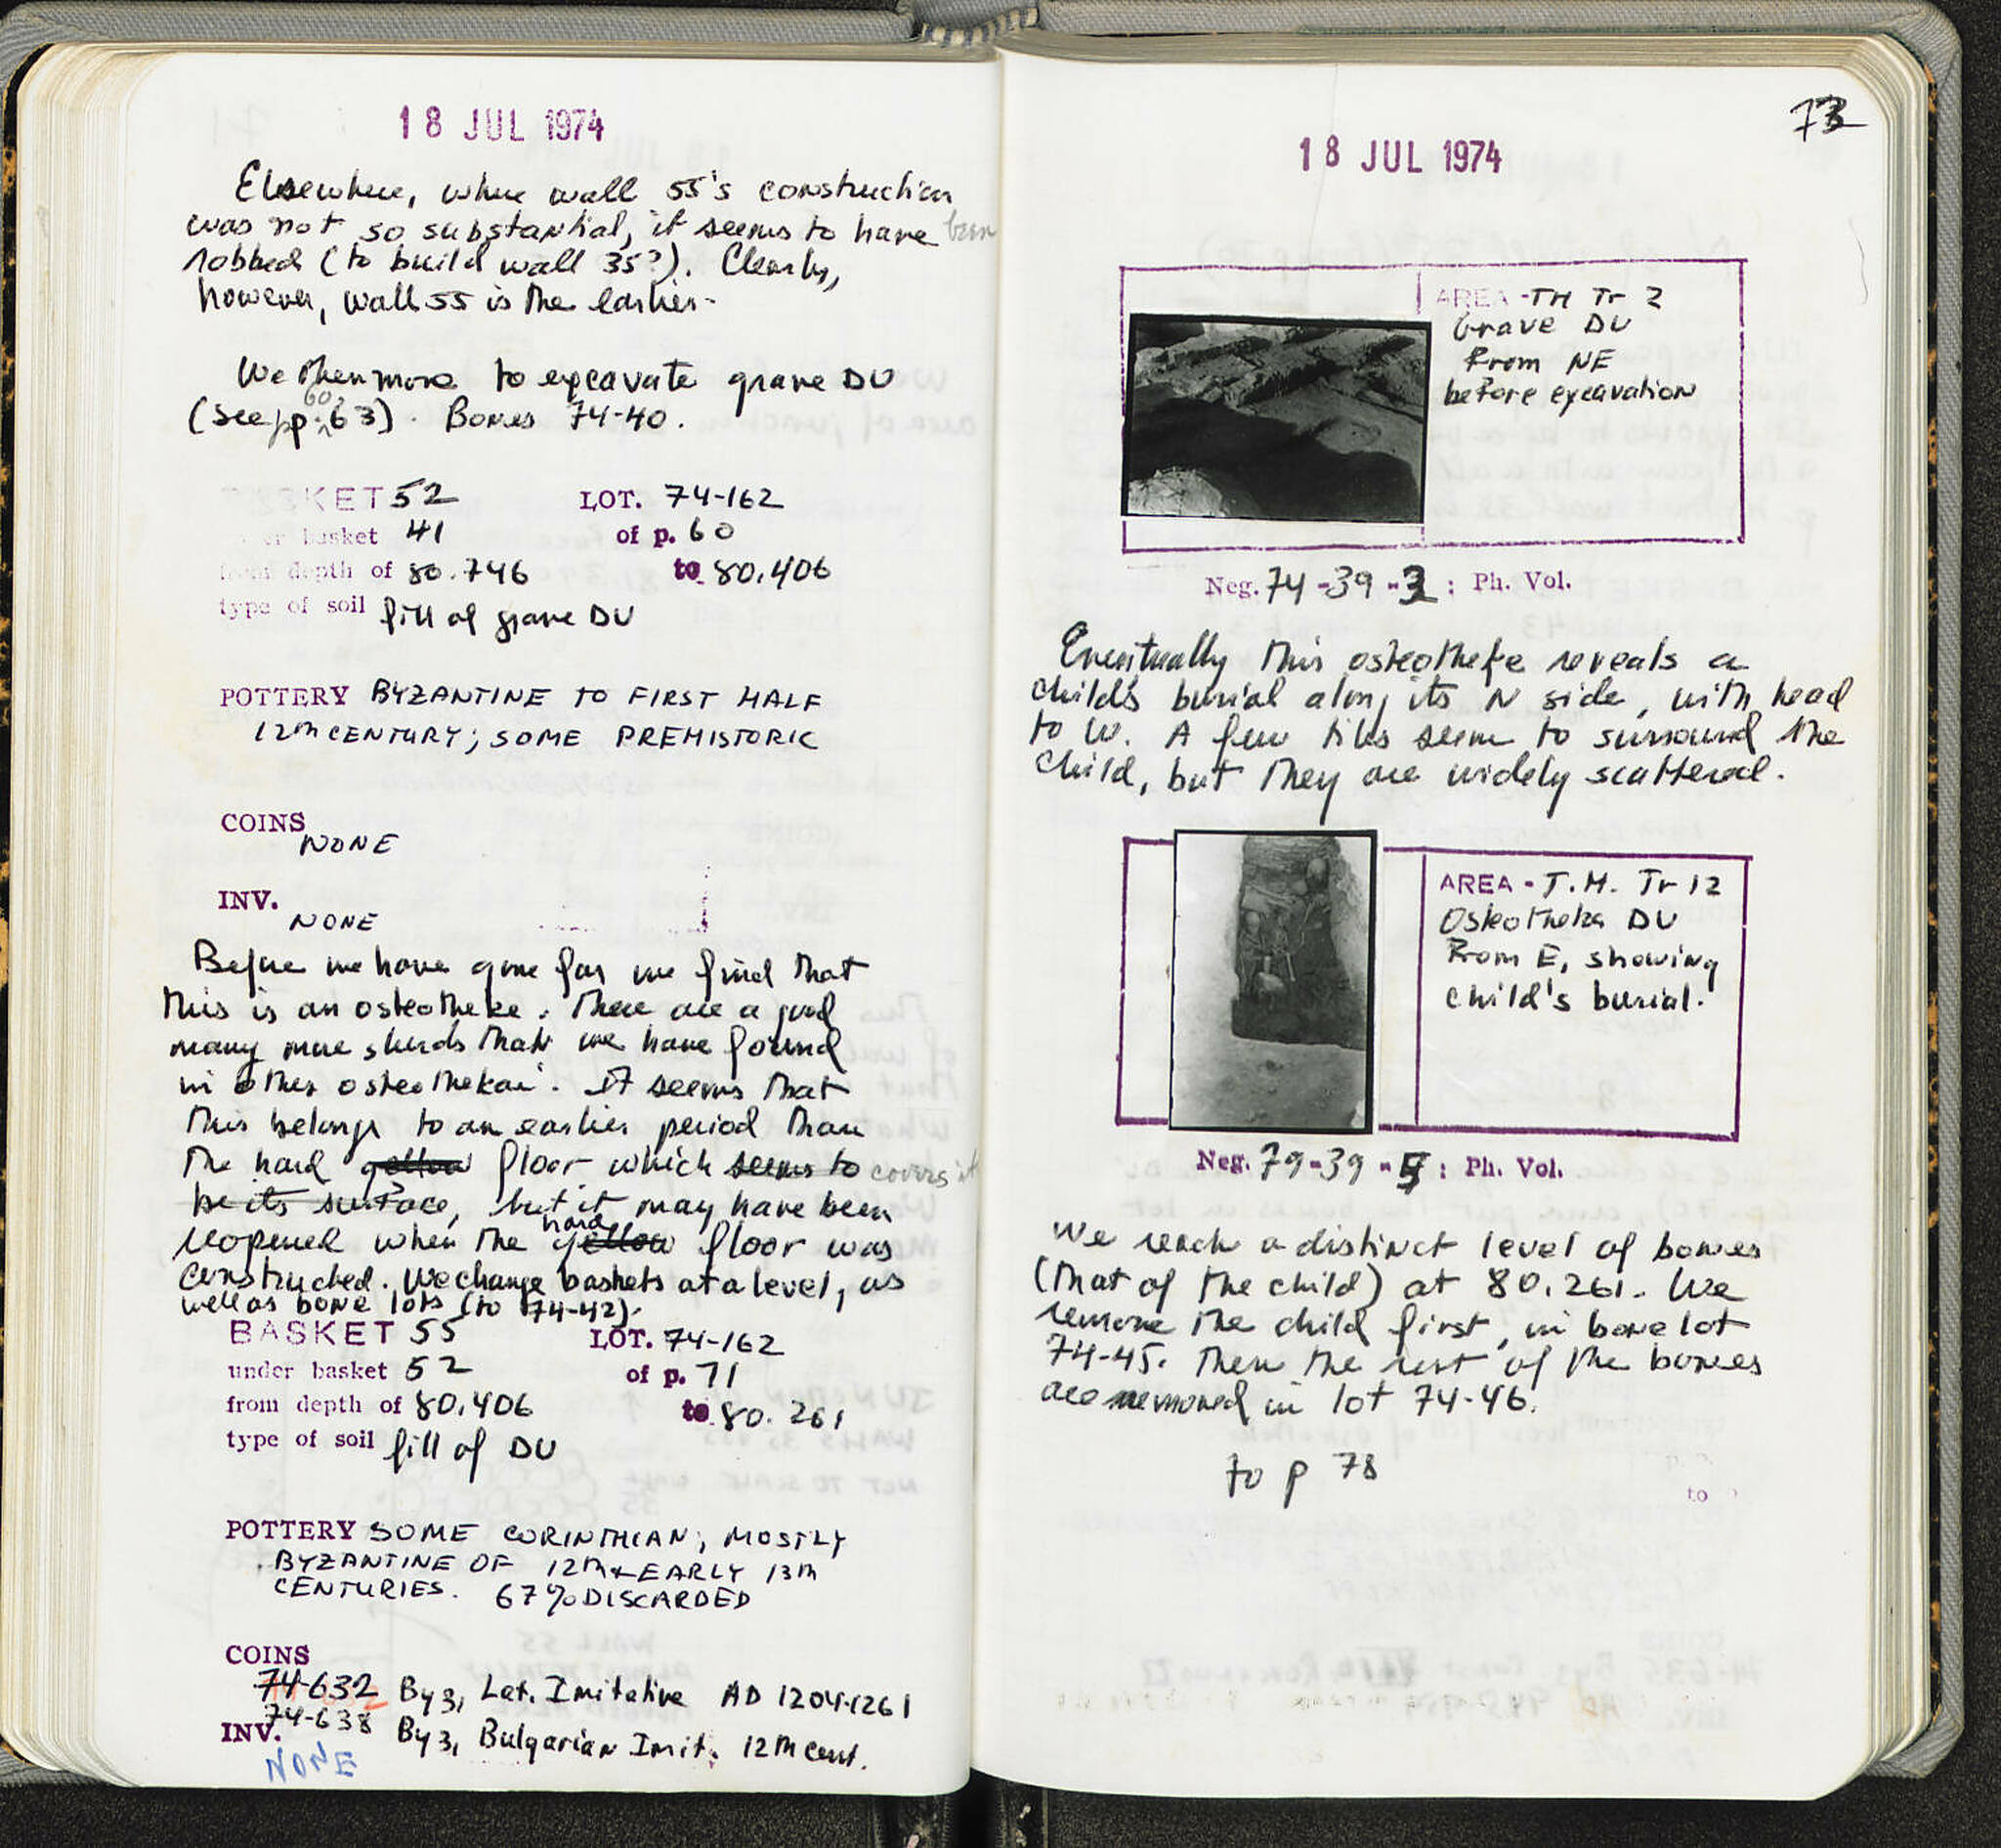 18 JUL 1974
Elsewhere, where wall 55's construction
was not so substantial, it seems to have been
robbed (to build wall 35?). Clearly,
however, wall 55 is the earlier.
We then move to excavate grave DU
(see pp. 60, 63). Bones 74-40.
BASKET 52 LOT. 74-162
under basket 41 of p. 60
from depth of 80.746 to 80.406
type of soil fill of grave DU
POTTERY BYZANTINE TO FIRST HALF
12th CENTURY; SOME PREHISTORIC
COINS
NONE
INV.
NONE
Before we have gone far we find that
this is an osteotheke. There are a good
many more sherds than we have found
in other osteothekai. It seems that
this belongs to an earlier period than
the hard yellow floor which seems to covers it
be its surface, but it may have been
reopened when the hard yellow floor was
constructed. We change baskets at a level, as
well as bone lots (to 74-42).
BASKET 55 LOT. 74-162
under basket 52 of p. 71
from depth of 80.406 to 80.261
type of soil fill of DU
POTTERY SOME CORINTHIAN; MOSTLY
BYZANTINE OF 12th & EARLY 13th
CENTURIES. 67% DISCARDED
COINS
74-632 Byz, Lat. Imitative AD 1204-1261
74-638 Byz, Bulgarian Imit. 12th cent.
INV.
NONE
73
18 JUL 1974
AREA - TM Tr 2
Grave DU
From NE
before excavation
Neg. 74-39-3 : Ph. Vol.
Eventually this osteotheke reveals a
child's burial along its N side, with head
to W. A few tiles seem to surround the
child, but they are widely scattered.
AREA - T.M. Tr 12
Osteotheka DU
From E, showing
child's burial.
Neg. 79-39-5 : Ph. Vol.
We reach a distinct level of bones
(that of the child) at 80.261. We
remove the child first, in bone lot
74-45. Then the rest of the bones
are removed in lot 74-46.
to p 78
to